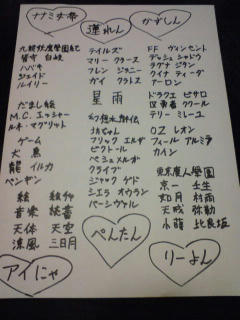 ナナミチ弟
蓮れん
かずしん
九龍妖魔學園紀
皆守 白岐
ハバキ
ジェイド
ルイリー
だまし絵
M.C.エッシャー
ルネ・マグリット
ゲーム
犬 鳥
龍 イルカ
ペンギン
絵 絵師
音楽 読書
天体 天空
涼風 三日月
アイにゃ
テイルズ
マリー クラース
フレン ジョニー
ガイ クラトス
星 雨
幻想水滸伝
坊ちゃん
フリック エルザ
ビクトール
ペシュメルガ
クライブ
ジャック ゲド
シエラ オウラン
パーシヴァル
ぺんたん
FF ヴィンセント
デッシュ シャドウ
ラグナ ジタン
クイナ ティーダ
アーロン
ドラクエ ピサロ
Ⅳ勇者 ククール
テリー ミレーユ
OZ レオン
フィール アルミラ
カイン
東京魔人學園
京一 壬生
如月 村雨
天戒 弥勒
小蒔 比良坂
りーよん